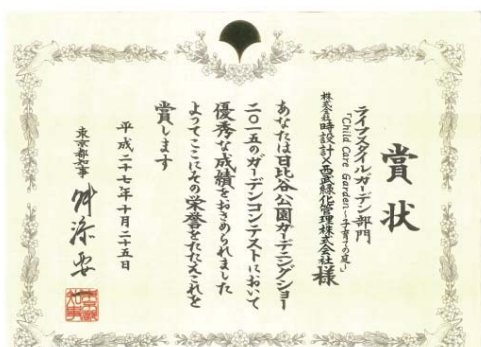 賞状
ライフスタイルガーデン部門
「Child Care Garden～子育ての庭」
株式会社時設計×西武緑化管理株式会社様
あなたは日比谷公園ガーデニングショー
二〇一五のガーデンコンテストにおいて
優秀な成績をおさめられました
よってここにその栄誉をたたえこれを
賞します
平成二十七年十月二十五日
東京都知事 舛添要一